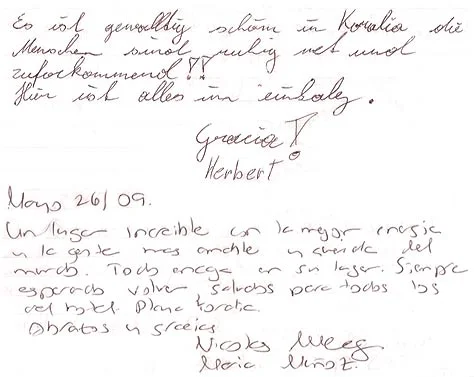 Es ist gewalltig schön in Koralia die
Menschen sind ruhig net und
zuforkommend!!
Hier ist alles im einkalg.
Gracia!
Herbert
Mayo 26/09.
Un lugar increible con la mejor energia
y la gente mas amable y querida del
mundo. Todo encaja en su lugar. Siempre
esperando volver saludos para todos los
del hotel. Playa
Abrazos y gracias
Nicolas
Maria Muñoz.